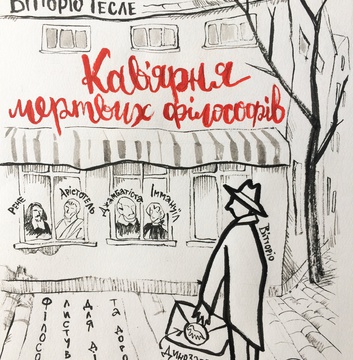 ВІТОРІО ГЕСЛЕ
Кав'ярня
мертвих філософів
Рене
Арістотель
Джамбатіста
Іммануїл
Віторіо
ФІЛОСО
ЛИСТУВ
ДЛЯ ДІ
ТА ДОРО